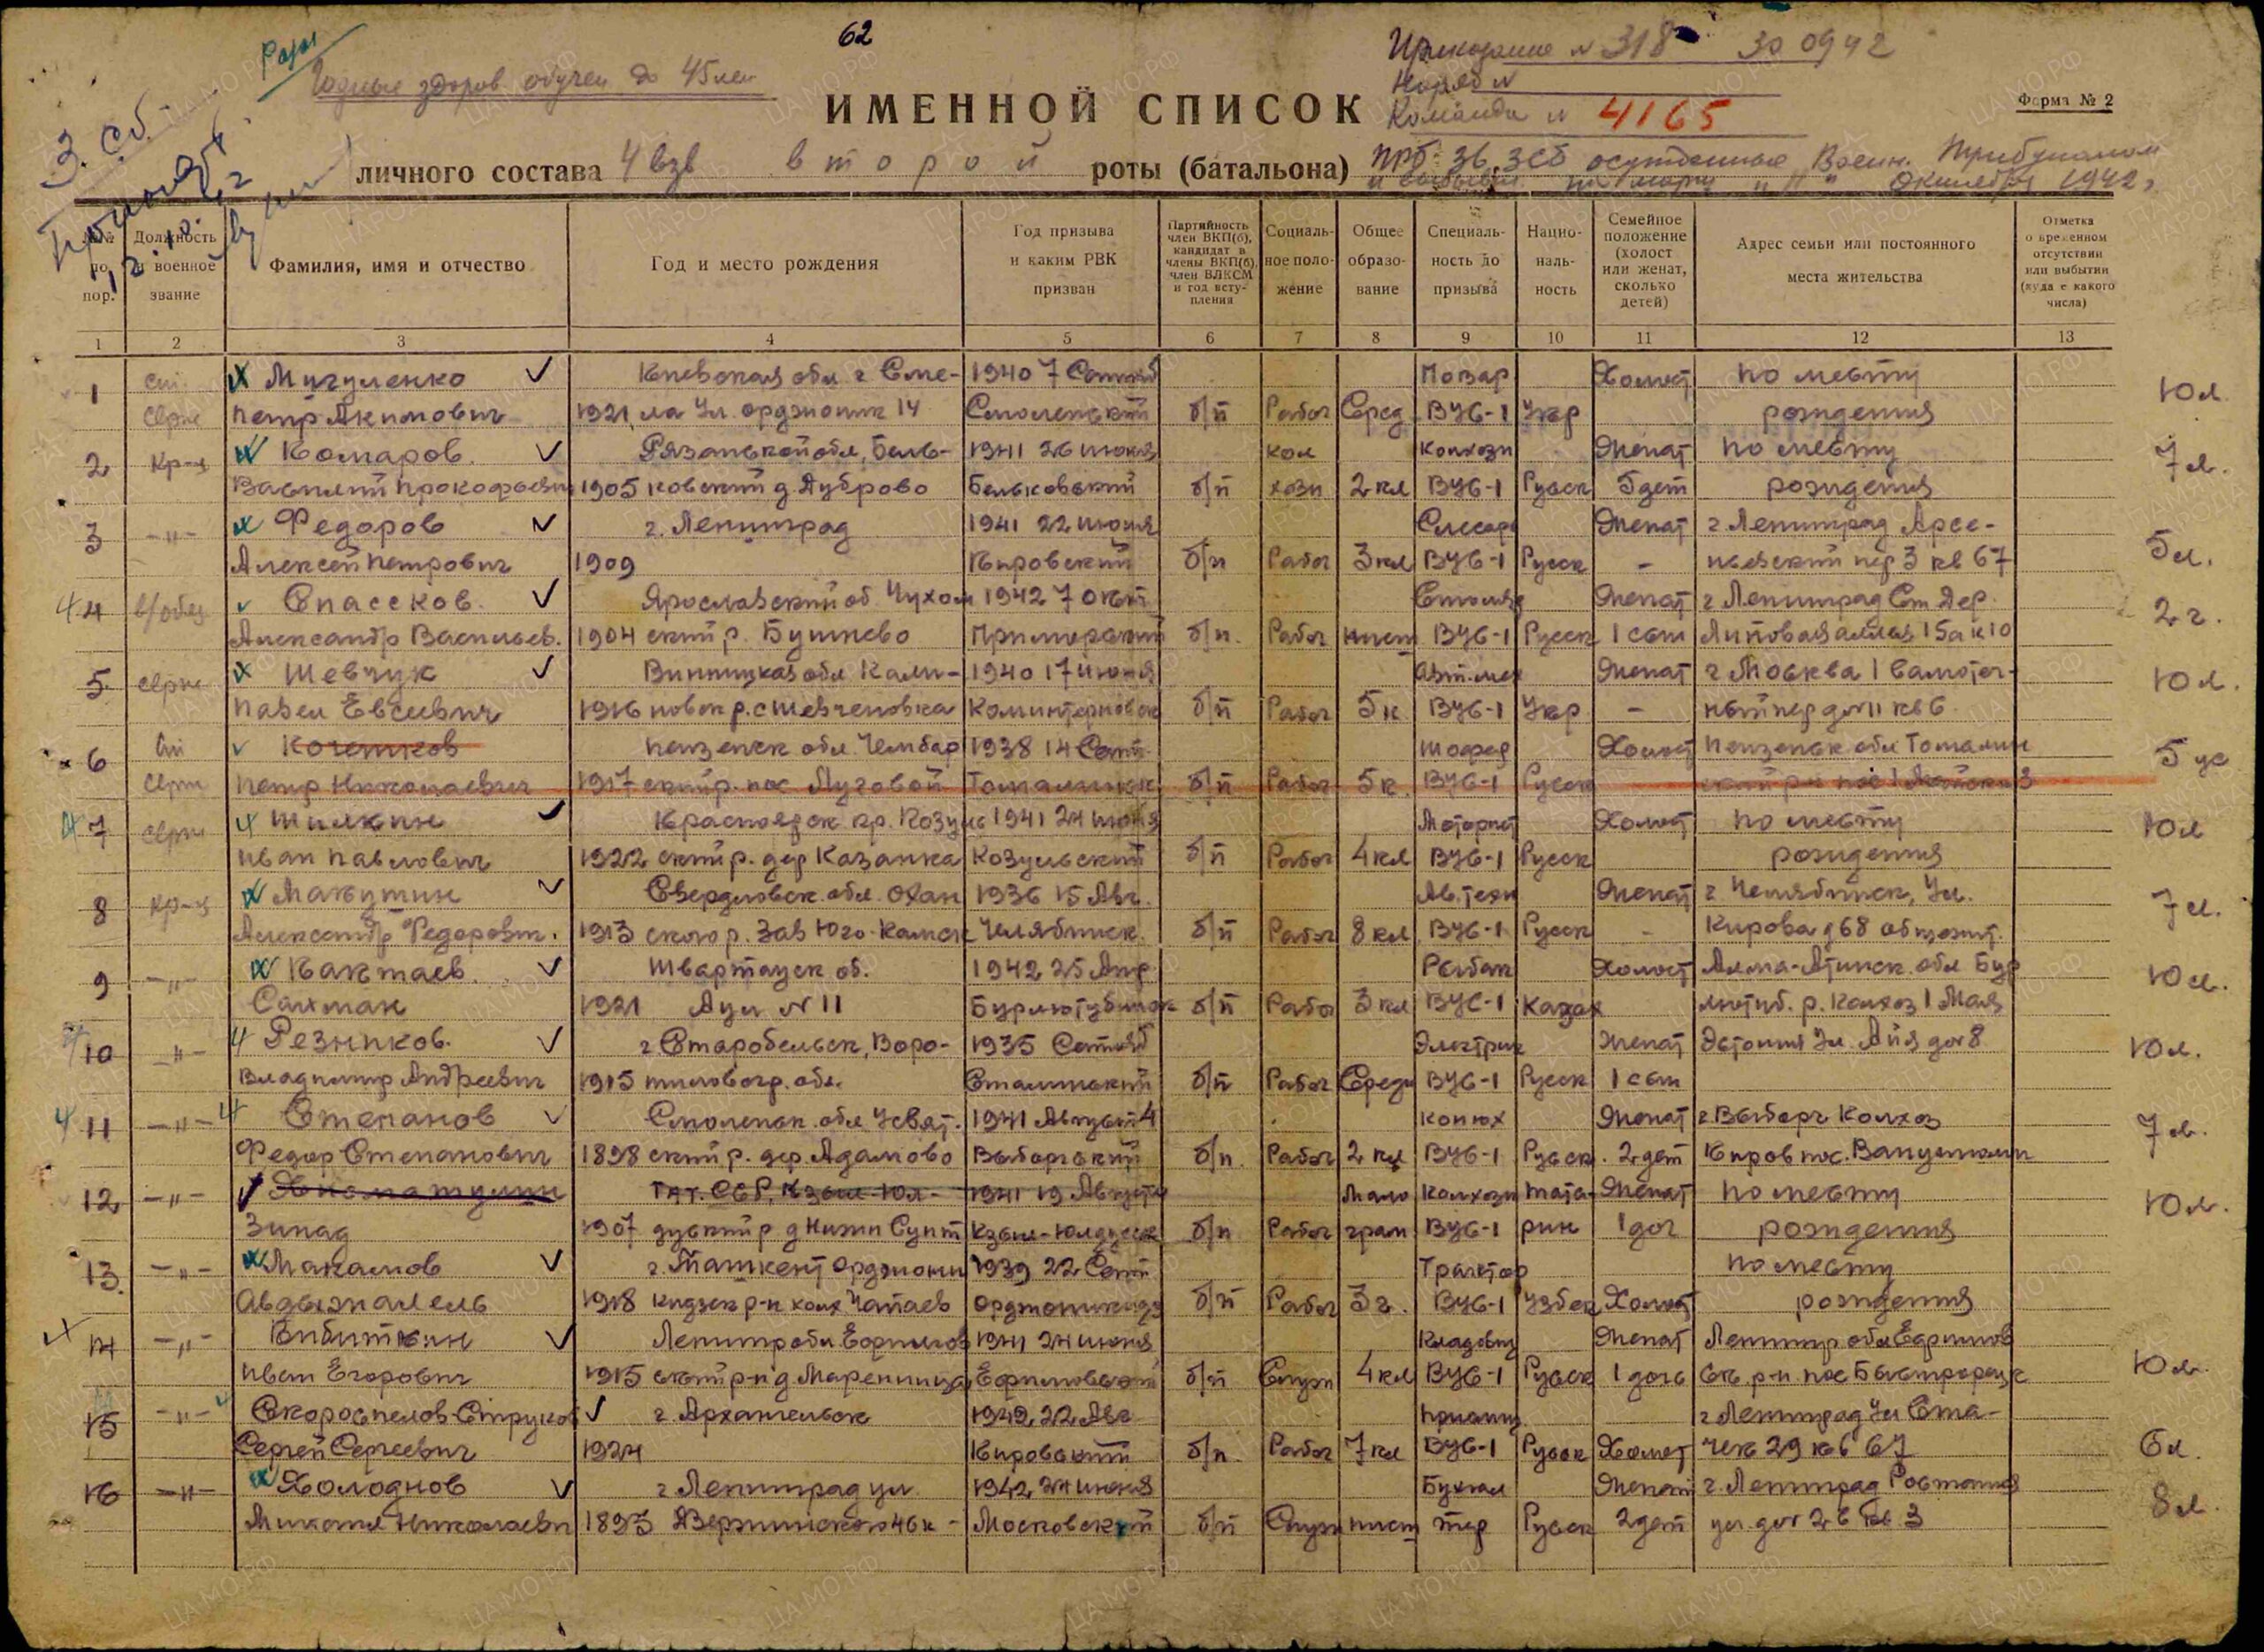 62
Роты
Годные здоров обучен до 45 лет
Приказание № 318 30 09 42
Наряд №
Команда № 4165
Форма № 2
ИМЕННОЙ СПИСОК
3. Сб.
личного состава 4 взв второй роты (батальона) ПРБ. 36 ЗСБ осужденные Воен. Трибуналом
Октября 1942 г
№№ по пор.
Должность и военное звание
Фамилия, имя и отчество
Год и место рождения
Год призыва и каким РВК призван
Партийность член ВКП(б), кандидат в члены ВКП(б), член ВЛКСМ и год вступления
Социальное положение
Общее образование
Специальность до призыва
Национальность
Семейное положение (холост или женат, сколько детей)
Адрес семьи или постоянного места жительства
Отметка о временном отсутствии или выбытии (куда с какого числа)
1 2 3 4 5 6 7 8 9 10 11 12 13
1 ст. Мугуленко Киевская обл г Сме- 1940 7 Сентяб Повар Холост по месту 10 л
серж Петр Акимович 1921 ла Ул. орджоник 14 Смоленский б/п Рабоч Сред ВУС-1 Укр рождения
2 Кр-ц Комаров. Рязанской обл, Бель- 1941 26 июня кол Колхозн Женат по месту 7 л.
Василий Прокофьевич 1905 ковский д. Дуброво Бельковский б/п хозн 2 кл ВУС-1 Русск 5 дет рождения
3 -"- Федоров г. Ленинград 1941 22 июня Слесарь Женат г Ленинград Арсе- 5 л.
Алексей Петрович 1909 Кировский б/п Рабоч 3 кл ВУС-1 Русск - ньевский пер 3 кв 67
4 4 Спассков. Ярославский об Чухом 1942 7 окт Столяр Женат г Ленинград Ст Дер. 2 г.
Александр Васильев. 1904 ский р. Бушнево Приморский б/п. Рабоч низш ВУС-1 Русск 1 сын Липовая аллея 15а к 10
5 серж Шевчук Винницкая обл Кали- 1940 17 июня Авт.мех Женат г Москва 1 Самотеч- 10 л.
Павел Евсеевич 1916 новск р. с Шевченовка Коминтерновск б/п Рабоч 5 к ВУС-1 Укр - ный пер дом 11 кв 6
6 Ст Кочетков Пензенск обл. Чембар 1938 14 Сент. Шофер Холост Пензенск. обл Тамалин
Серж Петр Николаевич 1917 ский р. пос Луговой Тамалинск б/п Рабоч 5 к. ВУС-1 Русск
7 серж 4 Шилкин Красноярск кр. Козуль 1941 24 июня Моторист Холост по месту 10 л
Иван Павлович 1922 ский р. дер Казанка Козульский б/п Рабоч 4 кл ВУС-1 Русск рождения
8 кр-ц Макутин Свердловск. обл. Охан 1936 15 Авг. Ав.техн Женат г. Челябинск, Ул. 7 л.
Александр Федорович. 1913 ского р. Зав Юго-Камск Челябинск. б/п Рабоч 8 кл ВУС-1 Русск - Кирова д 68 общежит.
9 -"- Кактаев. об. 1942 25 Апр Рыбак Холост Алма-Атинск. обл Бур 10 л.
Сахман 1921 Аул № 11 Бурлютубинск б/п Рабоч 3 кл ВУС-1 Казах лютуб. р. Колхоз 1 Мая
10 -"- 4 Резников. г Старобельск, Воро- 1935 Сентяб Электрик Женат Эстония Ул. Айя дом 8 10 л.
Владимир Андреевич 1915 шиловогр. обл. Сталинский б/п Рабоч Средн ВУС-1 Русск 1 сын
4 11 -"- 4 Степанов Смоленск. обл Усвят. 1941 Август 4 конюх Женат г. Выборг Колхоз 7 л.
Федор Степанович 1898 ский р. дер. Адамово Выборгский б/п. Рабоч 2 кл ВУС-1 Русск. 2 дет Киров
12 -"- Тат. ССР, Кзыл-Юл- 1941 19 Августа Мало Колхозн тата- Женат по месту 10 л.
Зинад 1907 дузский р д Нижн Сунт Кзыл-Юлдузск б/п Рабоч грам ВУС-1 рин 1 доч рождения
13. -"- Макамов г. Ташкент Орджони 1939 22 Сент Трактор по месту
1918 кидзек р-н колх Чапаев Орджоникидз б/п Рабоч 3 г. ВУС-1 Узбек Холост рождения
14 -"- Вибиткин Ленингр обл. Ефимов 1941 24 июня Кладовщ Женат Ленингр обл Ефимов 10 л.
Иван Егорович 1915 ский р-н д Маренница Ефимовский б/п Служ 4 кл ВУС-1 Русск 1 дочь ск. р-н. пос Быстрорецк
15 -"- Скороспелов-Струков г. Архангельск 1942 22 Авг г Ленинград Ул Ста- 6 л.
Сергей Сергеевич 1924 Кировский б/п. Рабоч 7 кл ВУС-1 Русск Холост чек 29 кв 67
16 -"- Холоднов г Ленинград ул. 1942 24 июня Бухгал Женат г. Ленинград Расстанная 8 л.
Михаил Николаевич 1893 Дзержинского 46 к - Московский б/п Служ низш тер Русск 2 дет ул. дом 2 в кв 3